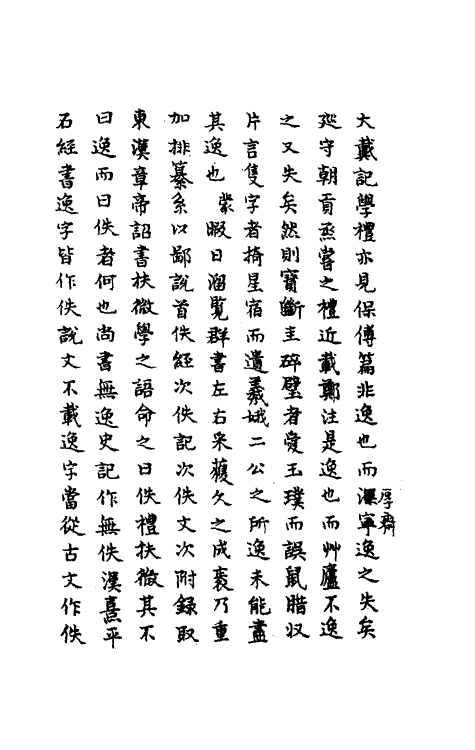 厚齋
大戴記學禮亦見保傅篇非逸也而深寧逸之失矣
廵守朝貢烝嘗之禮近載鄭注是逸也而艸廬不逸
之又失矣然則寶斷圭碎璧者愛玉璞而誤鼠腊収
片言隻字者掎星宿而遺羲娥二公之所逸未能盡
其逸也 蒙暇日溜覽群書左右采獲久之成袠乃重
加排纂系以鄙說首佚經次佚記次佚文次附錄取
東漢章帝詔書扶微學之語命之曰佚禮扶微其不
曰逸而曰佚者何也尚書無逸史記作無佚漢熹平
石經書逸字皆作佚說文不載逸字當從古文作佚